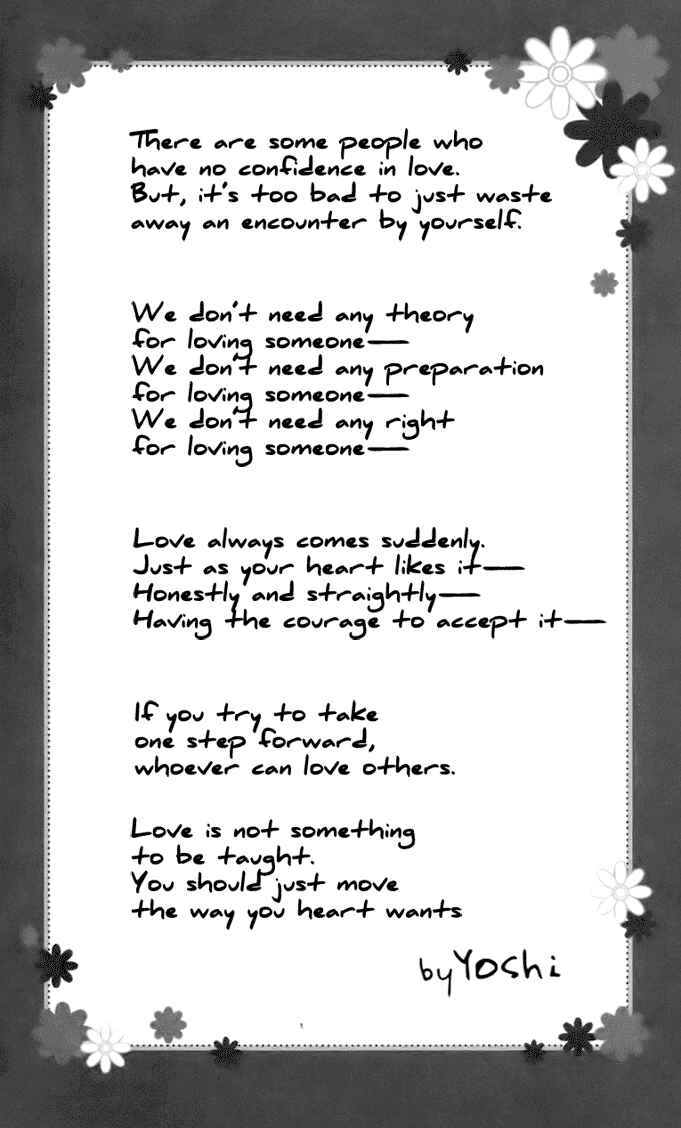 There are some people who
have no confidence in love.
But, it's too bad to just waste
away an encounter by yourself.
We don't need any theory
for loving someone—
We don't need any preparation
for loving someone—
We don't need any right
for loving someone—
Love always comes suddenly.
Just as your heart likes it—
Honestly and straightly—
Having the courage to accept it—
If you try to take
one step forward,
whoever can love others.
Love is not something
to be taught.
You should just move
the way you heart wants
by Yoshi